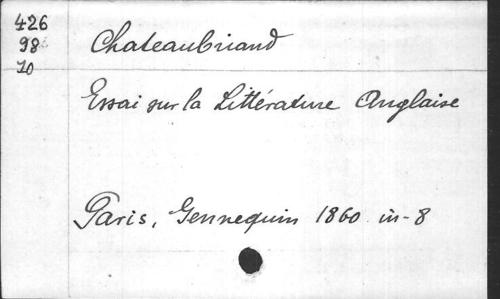 426
98
10
Chateaubriand
Essai sur la Littérature Anglaise
Paris, Gennequin 1860 in-8